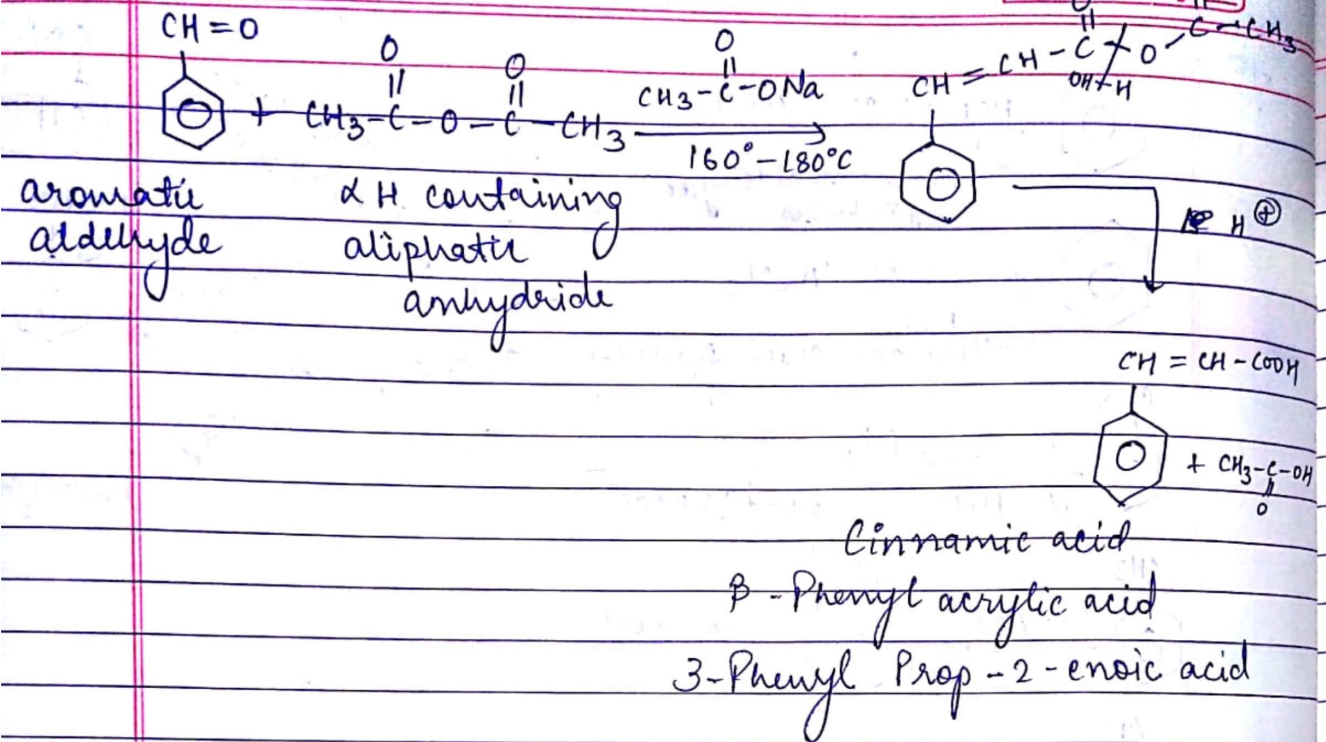 CH=O
O
||
O
||
CH3-C-O-C-CH3
+
O
||
CH3-C-ONa
160°-180°C
CH=CH-C-O-C-CH3
OH H
aromatic
aldehyde
α H containing
aliphatic
anhydride
H⊕
CH = CH-COOH
+ CH3-C-OH
||
O
Cinnamic acid
β-Phenyl acrylic acid
3-Phenyl Prop-2-enoic acid